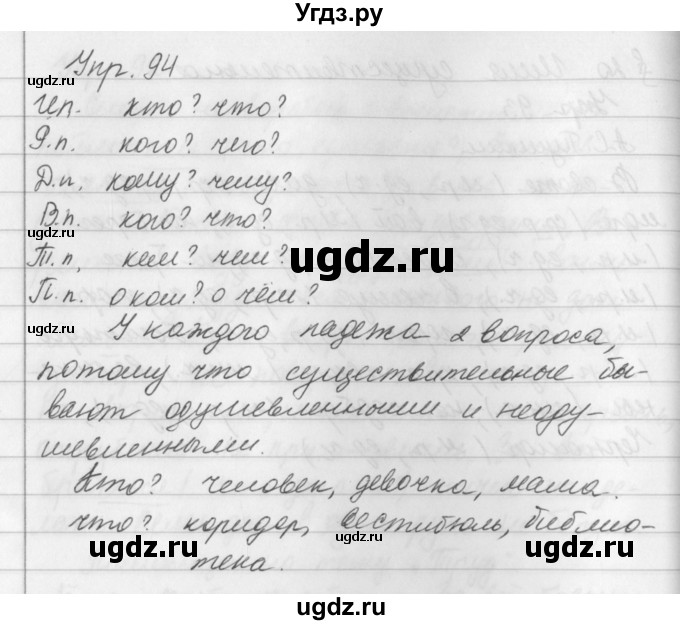 Угдз.ру
Упр. 94
ugdz.ru
И.п. кто? что?
Р.п. кого? чего?
ugdz.ru
Д.п. кому? чему?
В.п. кого? что?
ugdz.ru
Т.п. кем? чем?
ugdz.ru
П.п. о ком? о чём?
ugdz.ru
У каждого падежа 2 вопроса,
потому что существительные бы-
вают одушевленными и неоду-
шевленными.
Кто? человек, девочка, мама.
что? коридор, вестибюль, библио-
ugdz.ru ugdz.ru ugdz.ru
тека.
ugdz.ru